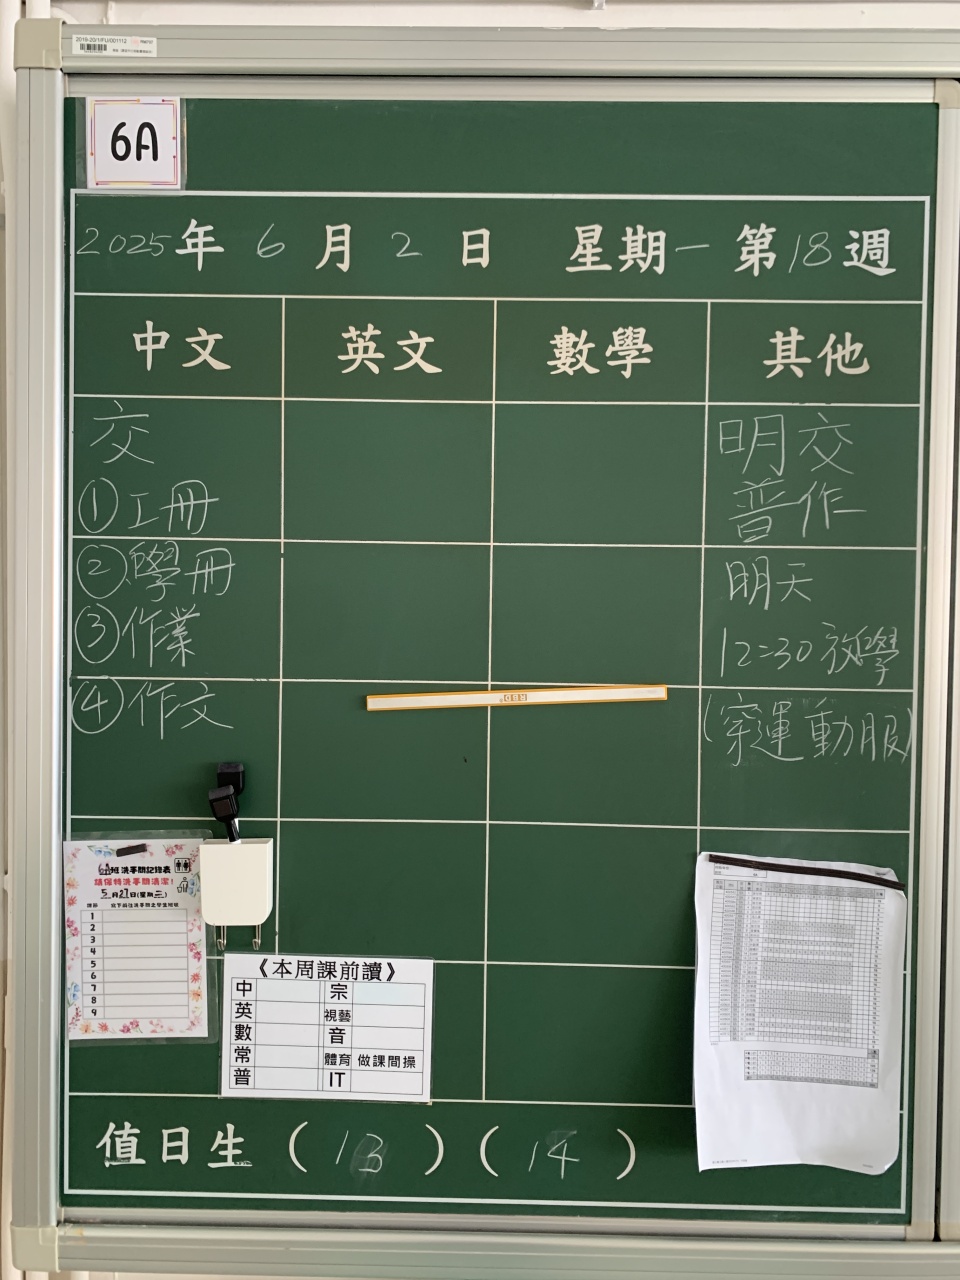 2019-20/1/FU/001112
6A
2025年 6月2日 星期一 第18週
中文 英文 數學 其他
交
①工冊
②學冊
③作業
④作文
明交
普作
明天
12:30放學
(穿運動服)
6A班洗手間記錄表
請保持洗手間清潔!
5月27日(星期二)
1
2
3
4
5
6
7
8
9
《本周課前讀》
中 宗
英 視藝
數 音
常 體育 做課間操
普 IT
值日生(13)(14)